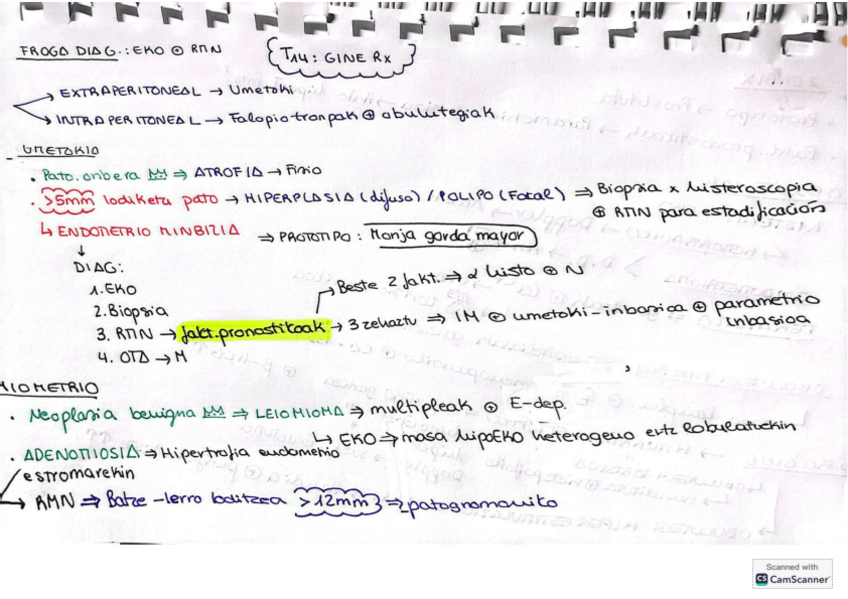 FROGA DIAG.: EKO ⊕ RMN
T14: GINE Rx
→ EXTRAPERITONEAL → Umetoki
→ INTRAPERITONEAL → Falopio tronpak ⊕ obulutegiak
- UMETOKIA
. Pato. onbera ⇒ ATROFIA → Fisio
. >5mm lodiketa pato → HIPERPLASIA (difuso) / POLIPO (Focal) ⇒ Biopsia x histeroscopia
⊕ RMN para estadificación
↳ ENDOMETRIO MINBIZIA ⇒ PROTOTIPO: Monja gorda mayor
↓
DIAG:
1. EKO
2. Biopsia
→ Beste 2 fakt. ⇒ α histo ⊕ N
3. RMN → fakt. pronostikoak → 3 zehaztu ⇒ IM ⊕ umetoki-inbasioa ⊕ parametrio
inbasioa
4. OTA → M
MIOMETRIO
. Neoplasia benigna ⇒ LEIOMIOMA ⇒ multipleak ⊕ E-dep.
↳ EKO ⇒ masa hipoEKO heterogeno ertz lobulatuekin
. ADENOMIOSIA ⇒ Hipertrofia endometrio
estromarekin
→ RMN ⇒ Batze-lerro loditzea >12mm ⇒ patognomoniko
Scanned with
CS CamScanner